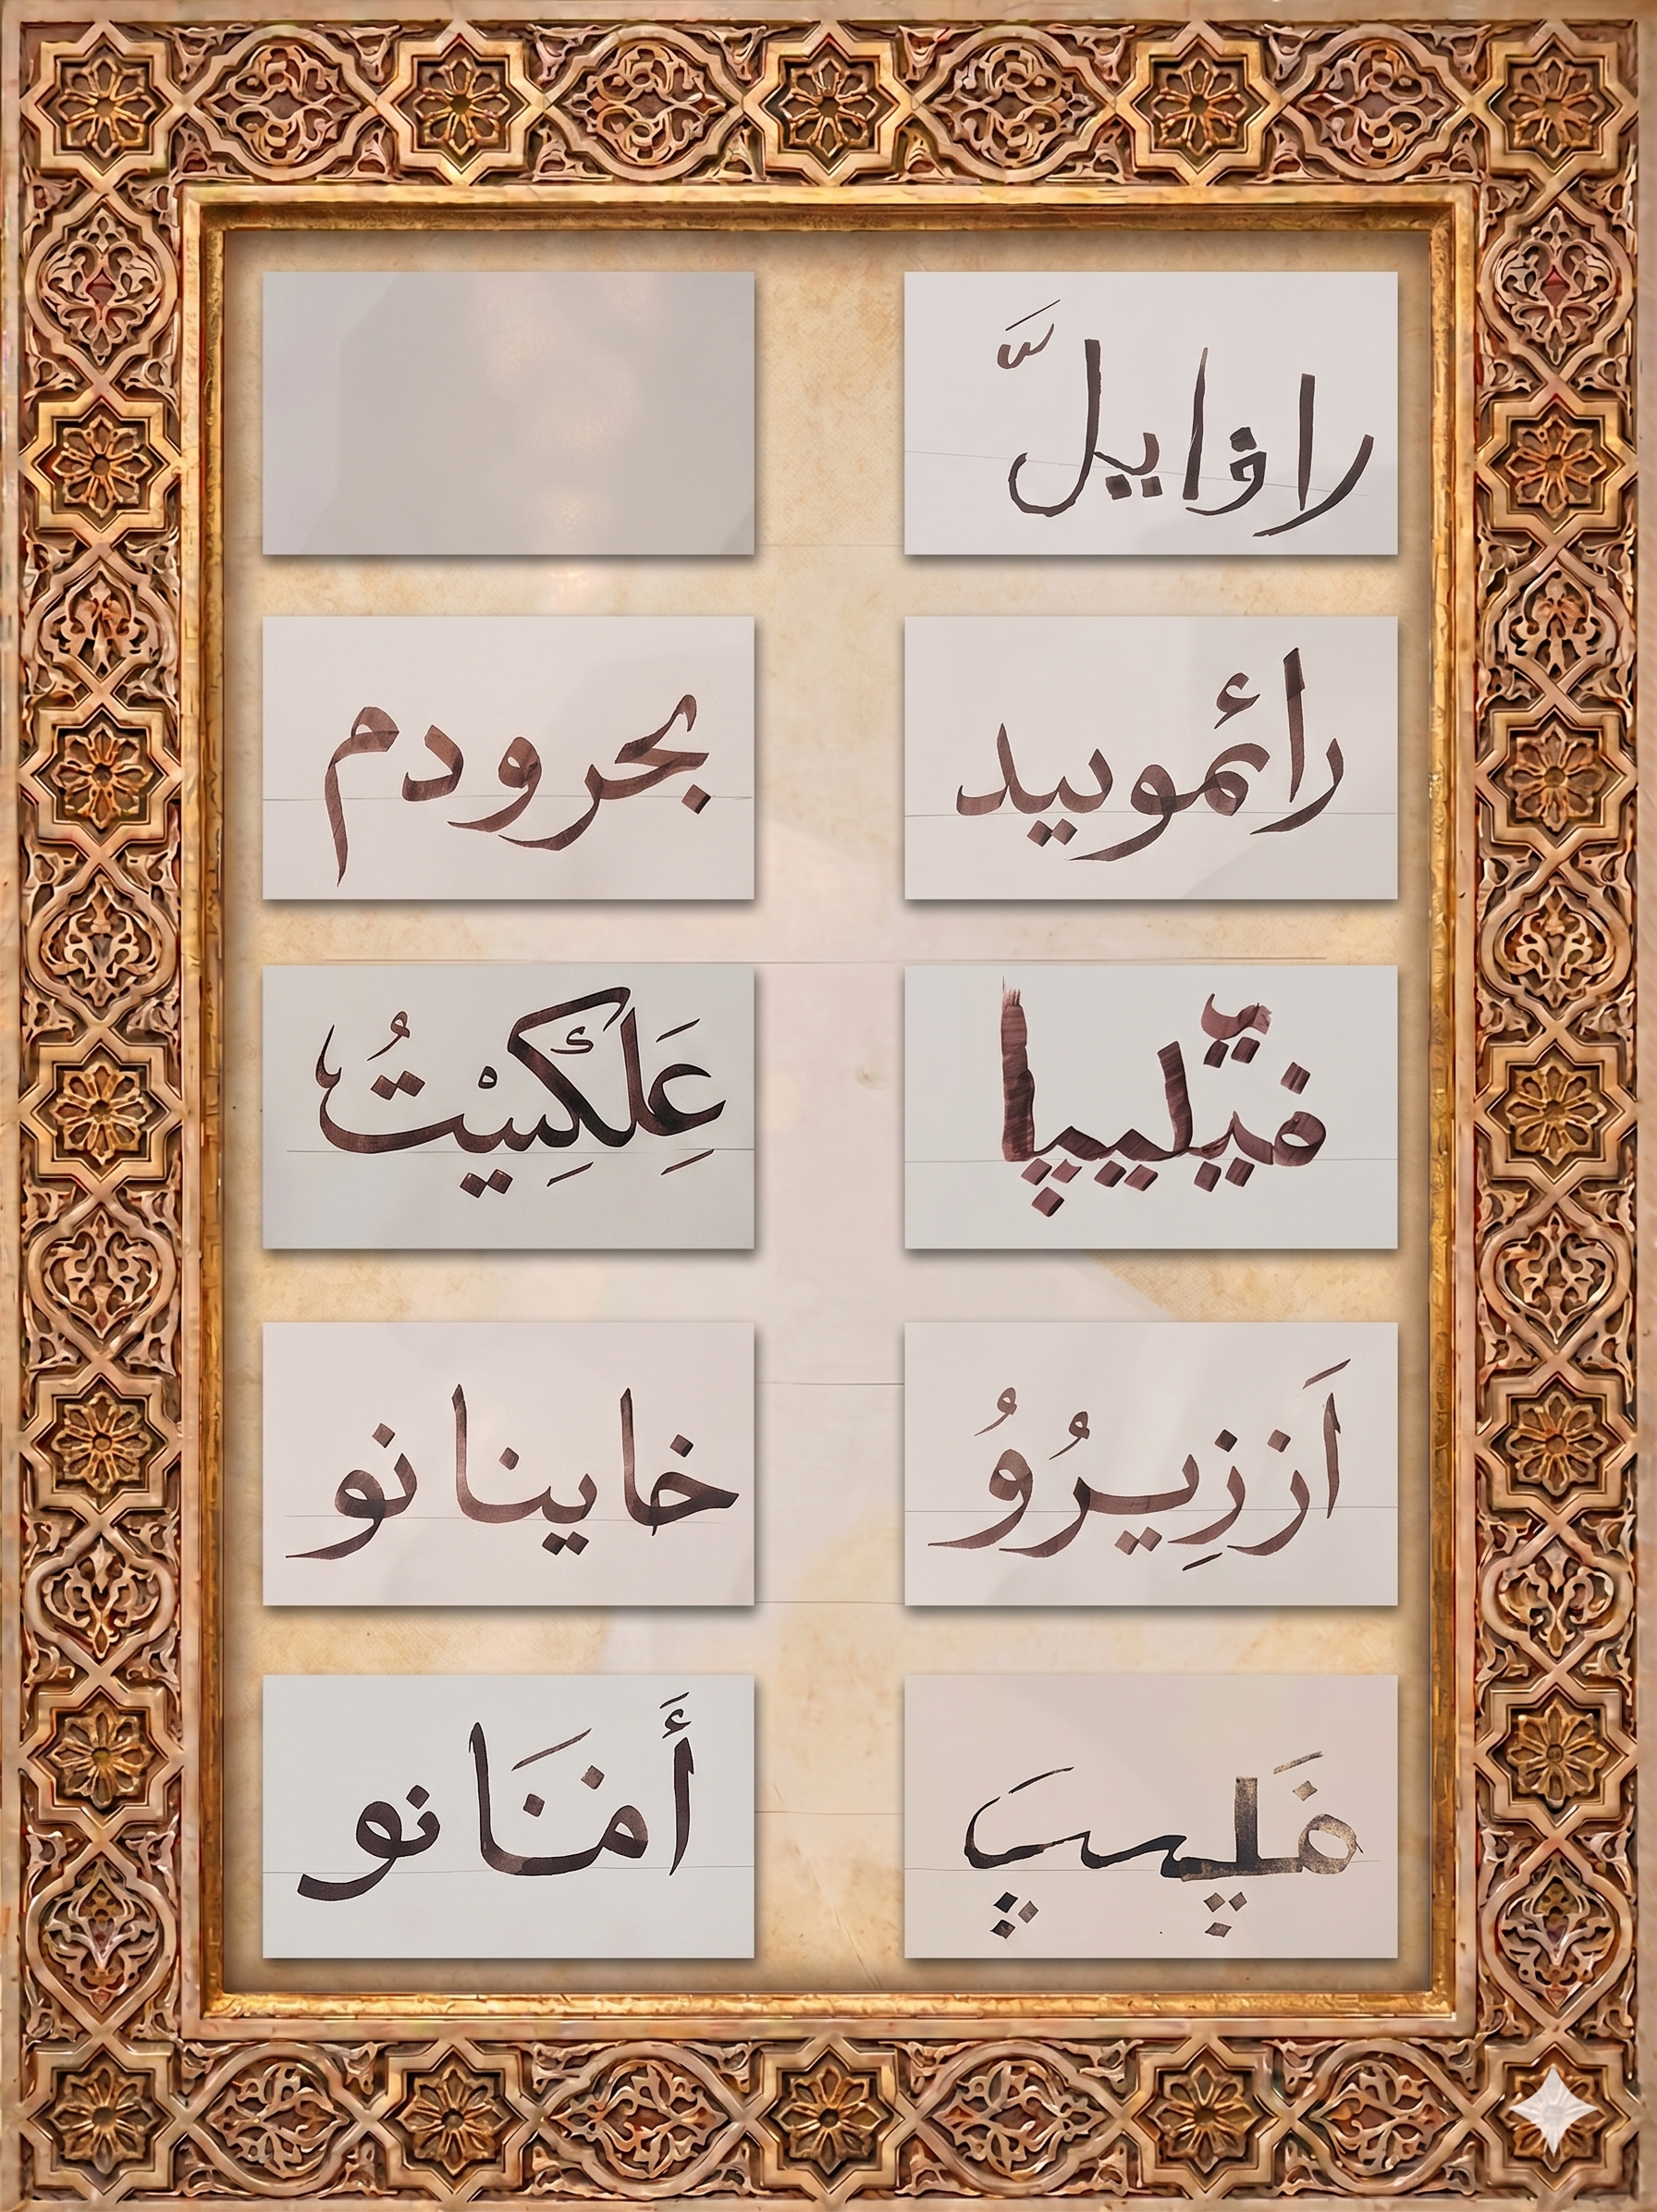 رافايلّ
رائموييد
بحرودم
فيّليپا
عَلِكسِيْتُ
اَززِيرُوُ
خاينانو
فَلپيپَ
أَمنَانو